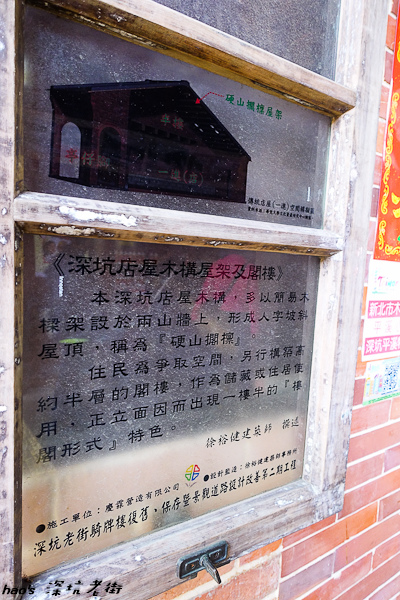 硬山擱檁屋架
亭仔腳
一進(店)
傳統店屋(一進)空間構組圖
《深坑店屋木構屋架及閣樓》
本深坑店屋木構,多以簡易木
樑架設於兩山牆上,形成人字坡斜
屋頂,稱為『硬山擱檁』。
住民為爭取空間,另行構築高
約半層的閣樓,作為儲藏或住居使
用,正立面因而出現一樓半的『樓
閣形式』特色。
徐裕健建築師 撰述
●施工單位:慶霖營造有限公司
●設計監造:徐裕健建築師事務所
深坑老街騎牌樓復舊、保存暨景觀道路設計改善第二期工程
新北市木
深坑平溪
hao's 深坑老街